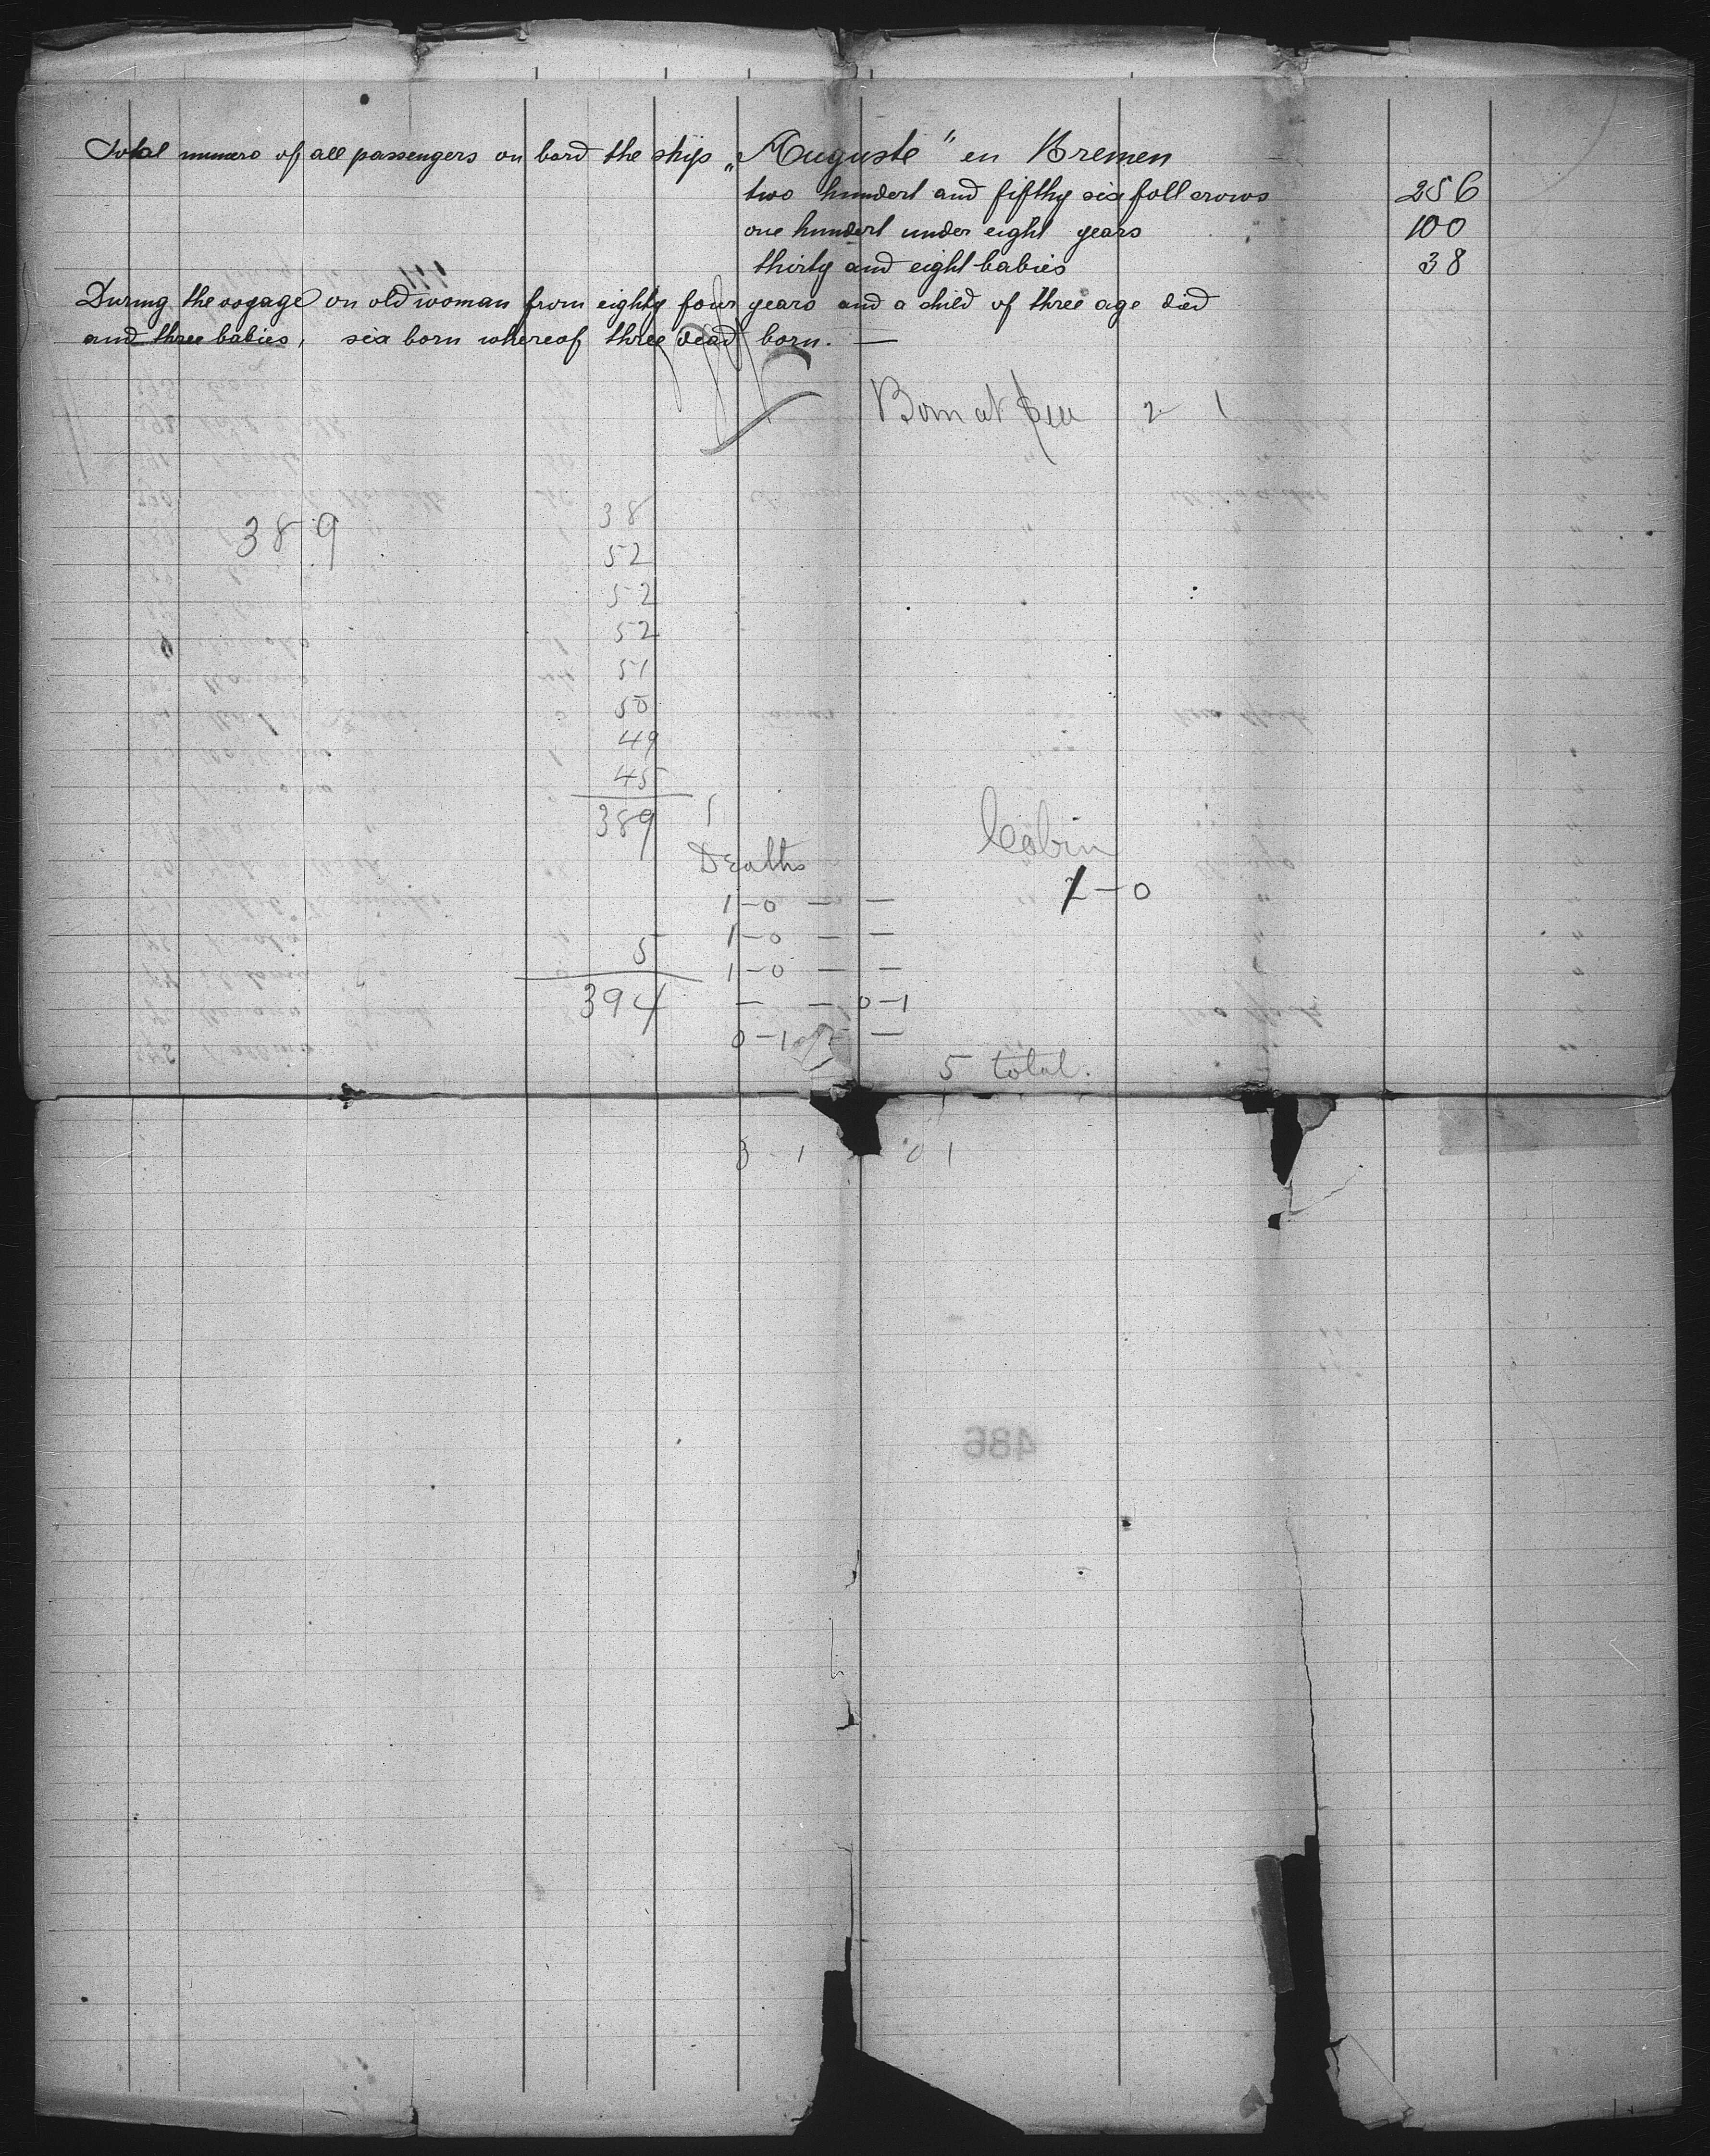 Total numero of all passengers on bord the ship „Auguste" en Bremen
two hundert and fifthy six foll crows 256
one hundert under eight years 100
thirty and eight babies 38
During the voyage on old woman from eighty four years and a child of three age died
and three babies, six born whereof three dead born. —
Born at Sea 2 1
389
38
52
52
52
51
50
49
45
389
Deaths
Cabin
1-0
1-0 — —
1-0 — —
5 1-0 — —
394 — — 0-1
0-1 —
5 total.
3 - 1 0 1
486